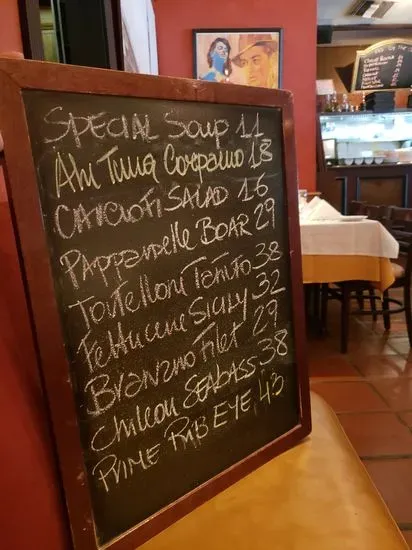 SPECIAL Soup 11
Ahi Tuna Carpaccio 18
CARCIOFI SALAD 16
PAPPARdelle BOAR 29
Tortelloni Tartufo 38
Fettucine Sicily 32
Branzino Filet 29
Chilean SEABASS 38
PRIME RIB EYE, 43